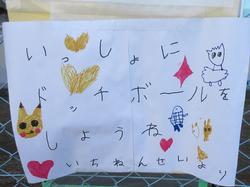 いっしょに
ドッチボールを
しようね
いちねんせいより